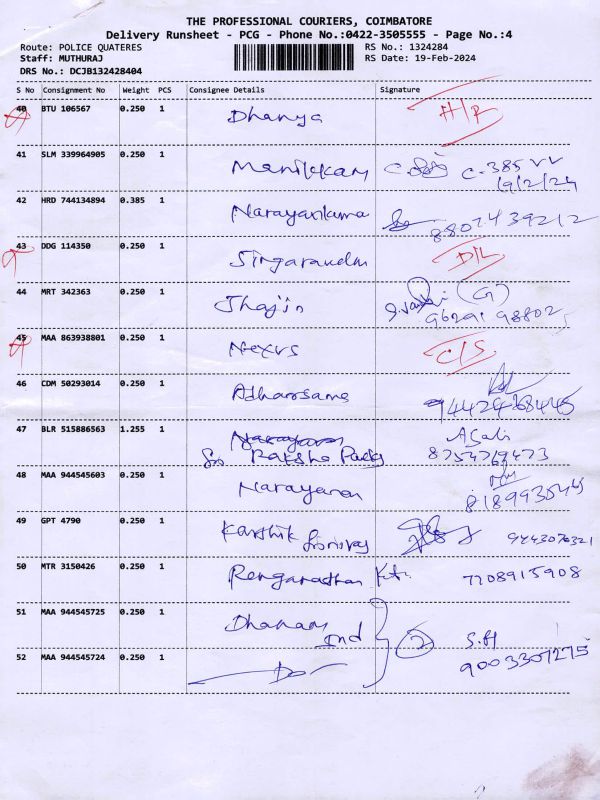 THE PROFESSIONAL COURIERS, COIMBATORE
Delivery Runsheet - PCG - Phone No.:0422-3505555 - Page No.:4
Route: POLICE QUATERES RS No.: 1324284
Staff: MUTHURAJ RS Date: 19-Feb-2024
DRS No.: DCJB132428404
S No Consignment No Weight PCS Consignee Details Signature
40 BTU 106567 0.250 1 Dhanya
41 SLM 339964905 0.250 1 Manikkam C.385 VV
19/2/24
42 HRD 744134894 0.385 1 8807439212
43 DDG 114350 0.250 1 D/L
44 MRT 342363 0.250 1 Jhajin (G)
96291 98802
45 MAA 863938801 0.250 1 Nexus C/S
46 CDM 50293014 0.250 1
47 BLR 515886563 1.255 1 Narayanan
Raksha Packs 8754769473
48 MAA 944545603 0.250 1 Narayanan
49 GPT 4790 0.250 1 Karthik 9443076321
50 MTR 3150426 0.250 1 7708915908
51 MAA 944545725 0.250 1 Dhanam
Ind 2 S.H
52 MAA 944545724 0.250 1 Do 9003307275